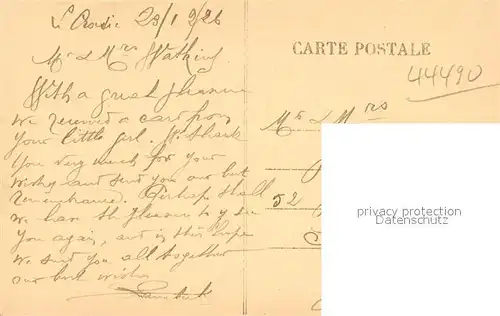 Le Croisic 23/1 1926
Mr & Mrs Watking
With a great pleasure
We received a card from
Your little girl. We thank
You very much for your
wishes and send you our best
remembrance. Perhaps shall
we have the pleasure to see
You again, and in this hope
We send you all together
our best wishes
CARTE POSTALE
44490
Mr & Mrs
52
privacy protection
Datenschutz